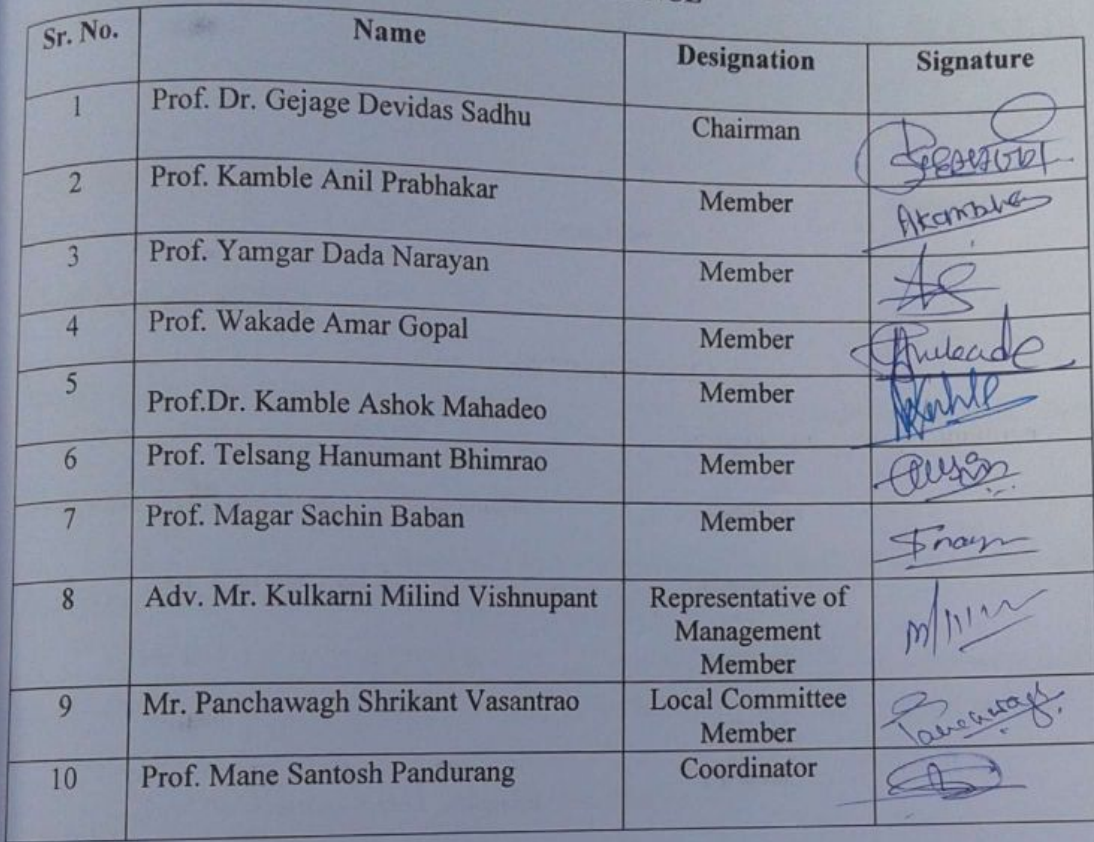 Sr. No. Name Designation Signature
1 Prof. Dr. Gejage Devidas Sadhu Chairman
2 Prof. Kamble Anil Prabhakar Member Akamble
3 Prof. Yamgar Dada Narayan Member
4 Prof. Wakade Amar Gopal Member
5 Prof.Dr. Kamble Ashok Mahadeo Member
6 Prof. Telsang Hanumant Bhimrao Member
7 Prof. Magar Sachin Baban Member
8 Adv. Mr. Kulkarni Milind Vishnupant Representative of
Management
Member
9 Mr. Panchawagh Shrikant Vasantrao Local Committee
Member
10 Prof. Mane Santosh Pandurang Coordinator